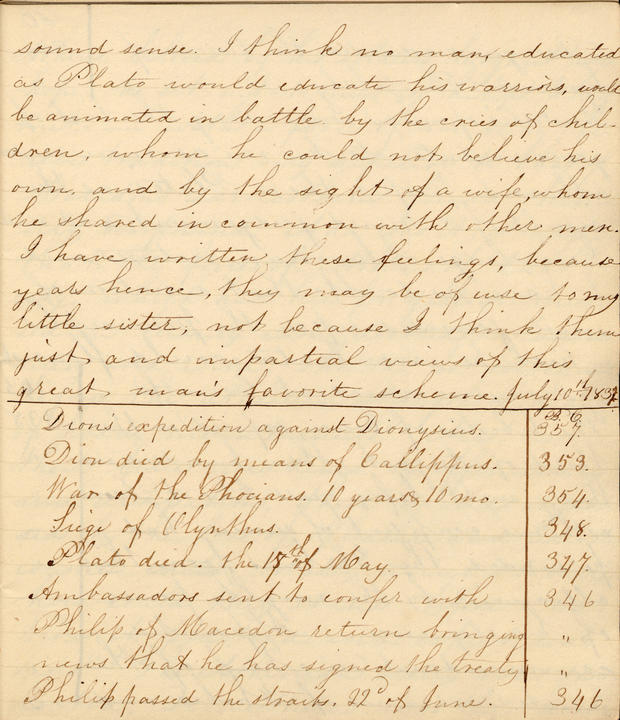 sound sense. I think no man, educated
as Plato would educate his warriors, would
be animated in battle by the cries of chil-
dren, whom he could not believe his
own, and by the sight of a wife, whom
he shared in common with other men.
I have written these feelings, because
years hence, they may be of use to my
little sister, not because I think them
just and impartial views of this
great man's favorite scheme. July 10th 1837
B.C.
Dion's expedition against Dionysius. 357.
Dion died by means of Callippus. 353.
War of the Phocians. 10 years & 10 mo. 354.
Siege of Olynthus. 348.
Plato died. the 15th of May. 347.
Ambassadors sent to confer with 346
Philip of Macedon return bringing "
news that he has signed the treaty "
Philip passed the straits. 22d of June. 346